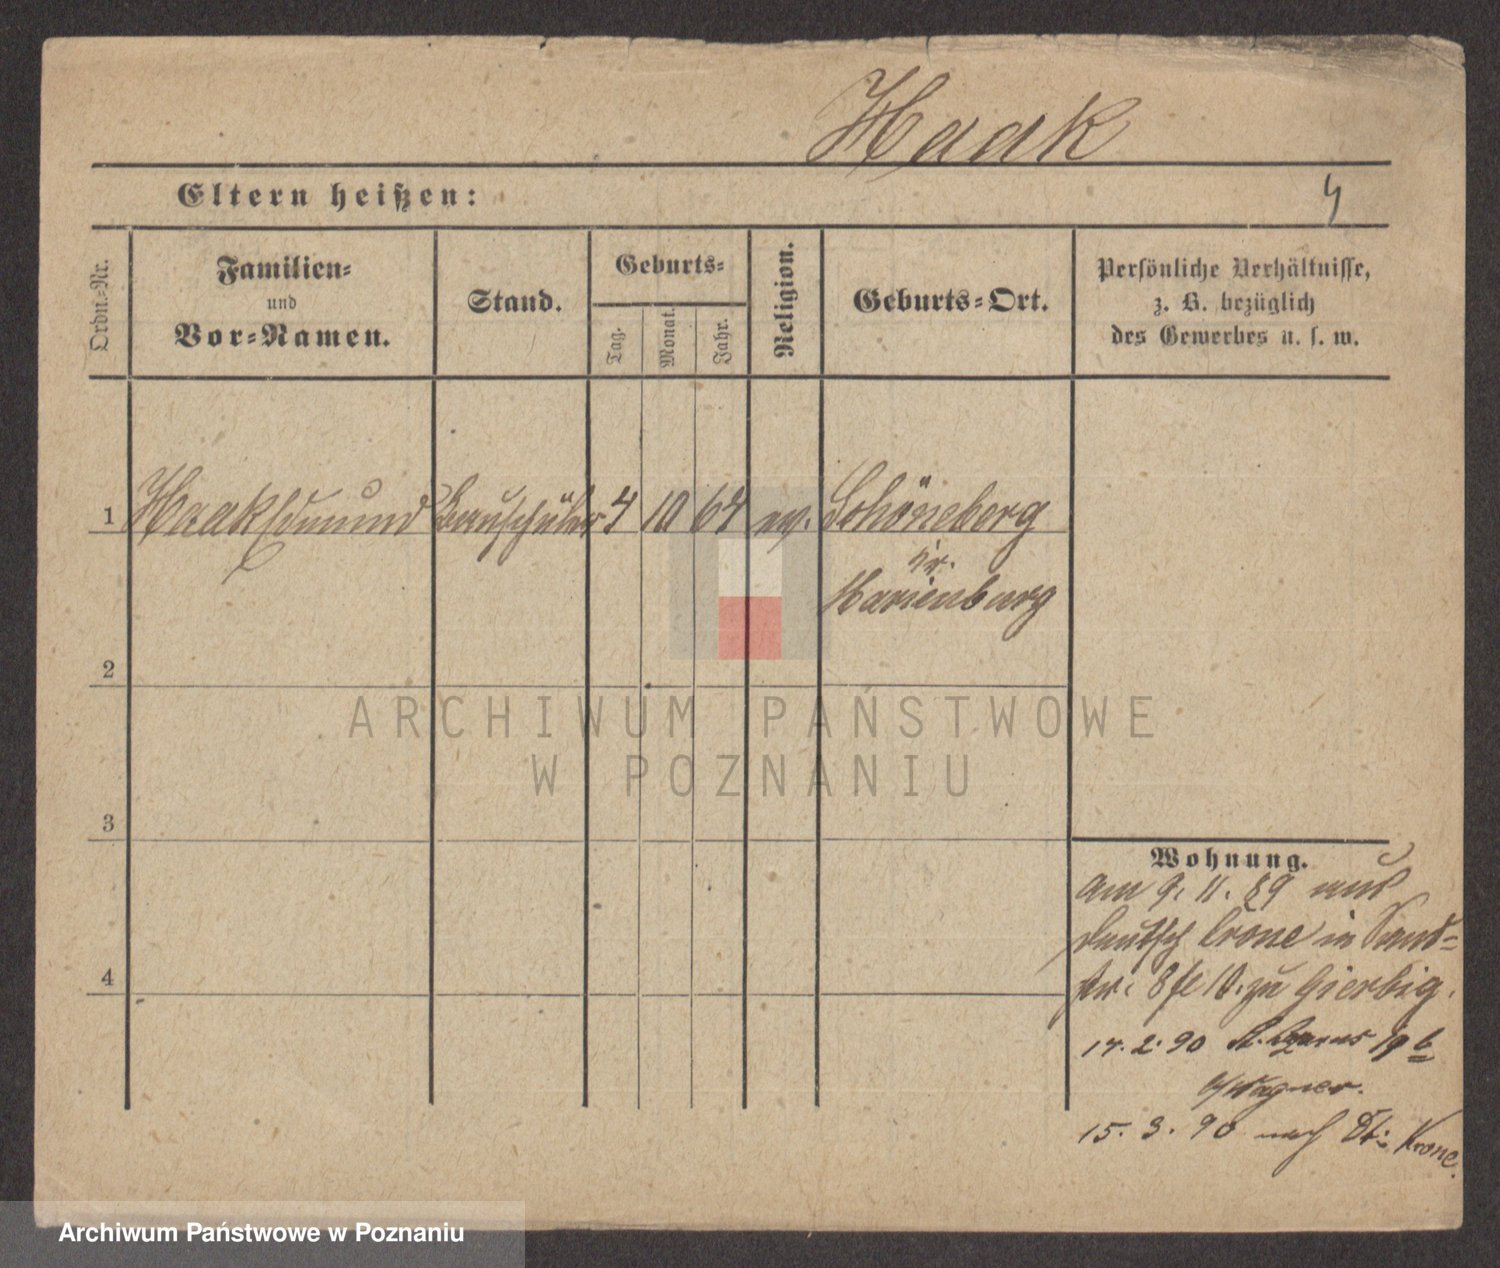 Haak
Eltern heißen:
4
Ordn.-Nr.
Familien-
und
Vor-Namen.
Stand.
Geburts-
Tag.
Monat.
Jahr.
Religion.
Geburts-Ort.
Persönliche Verhältnisse,
z. B. bezüglich
des Gewerbes u. s. w.
1 Haak Edmund Bauschüler 4 10 64 ev. Schöneberg
Kr.
Marienburg
2
3
4
Wohnung.
am 9. 11. 89 aus
Deutsch Crone in Sand-
str. 8 10. zu Gierbig.
17. 2. 90 19 b
b/Wagner.
15. 3. 90 nach Dt. Krone.
ARCHIWUM PAŃSTWOWE
W POZNANIU
Archiwum Państwowe w Poznaniu